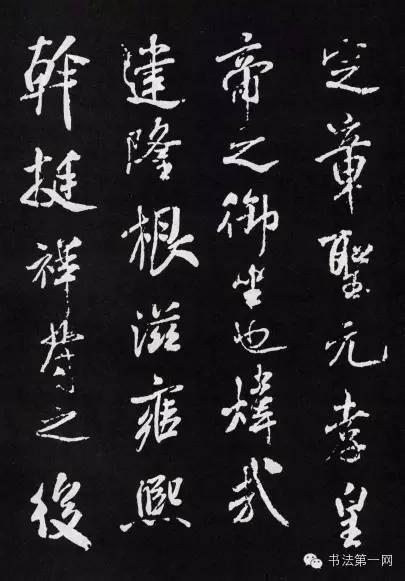 定章聖元孝皇
帝之御坐也煒哉
建隆根滋雍熙
幹挺祥符之後
书法第一网